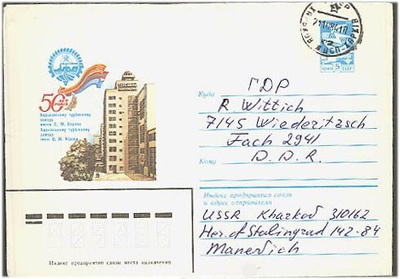 50 лет
Харьковскому турбинному
заводу
имени С. М. Кирова
Харківському турбінному
заводу
імені С. М. Кірова
Куда
ГДР
R. Wittich
7145 Wiederitzsch
Fach 2941
Кому
D. D. R.
Индекс предприятия связи
и адрес отправителя
USSR Kharkov 310162
Her. of Stalingrad 142-84
Manevich
Индекс предприятия связи места назначения